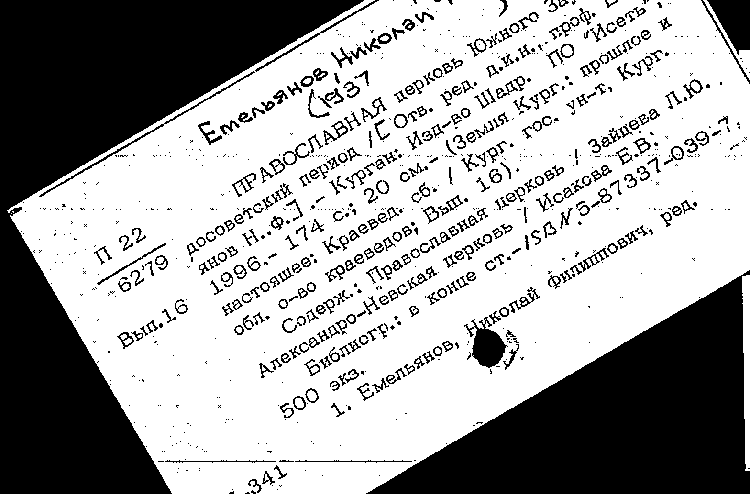 Емельянов Николай
(1937
ПРАВОСЛАВНАЯ церковь Южного
досоветский период /[Отв. ред. д.и.н., проф.
янов Н..Ф.].- Курган: Изд-во Шадр. ПО "Исеть",
1996.- 174 с.; 20 см.- (Земля Кург.: прошлое и
настоящее: Краевед. сб. / Кург. гос. ун-т, Кург.
обл. о-во краеведов; Вып. 16).
Содерж.: Православная церковь / Зайцева Л.Ю.
Александро-Невская церковь / Исакова Е.В.
Библиогр.: в конце ст.-ISBN.5-87337-039-7,
500 экз.
1. Емельянов, Николай Филиппович, ред.
П 22
6279
Вып.16
341